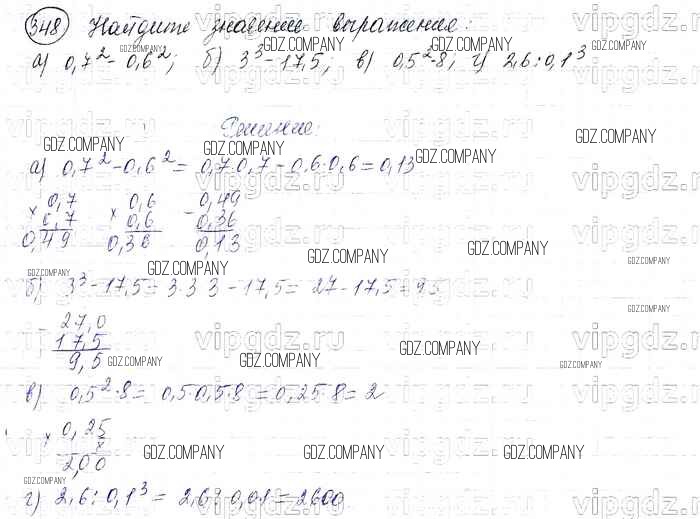 348 Найдите значение выражения:
а) 0,7² - 0,6²; б) 3³ - 17,5; в) 0,5²·8; г) 2,6 : 0,1³
Решение:
а) 0,7² - 0,6² = 0,7·0,7 - 0,6·0,6 = 0,13
× 0,7 × 0,6 - 0,49
0,7 0,6 0,36
0,49 0,36 0,13
б) 3³ - 17,5 = 3·3·3 - 17,5 = 27 - 17,5 = 9,5
- 27,0
17,5
9,5
в) 0,5²·8 = 0,5·0,5·8 = 0,25·8 = 2
× 0,25
2,00
г) 2,6 : 0,1³ = 2,6 : 0,01 = 2600
GDZ.COMPANY
vipgdz.ru